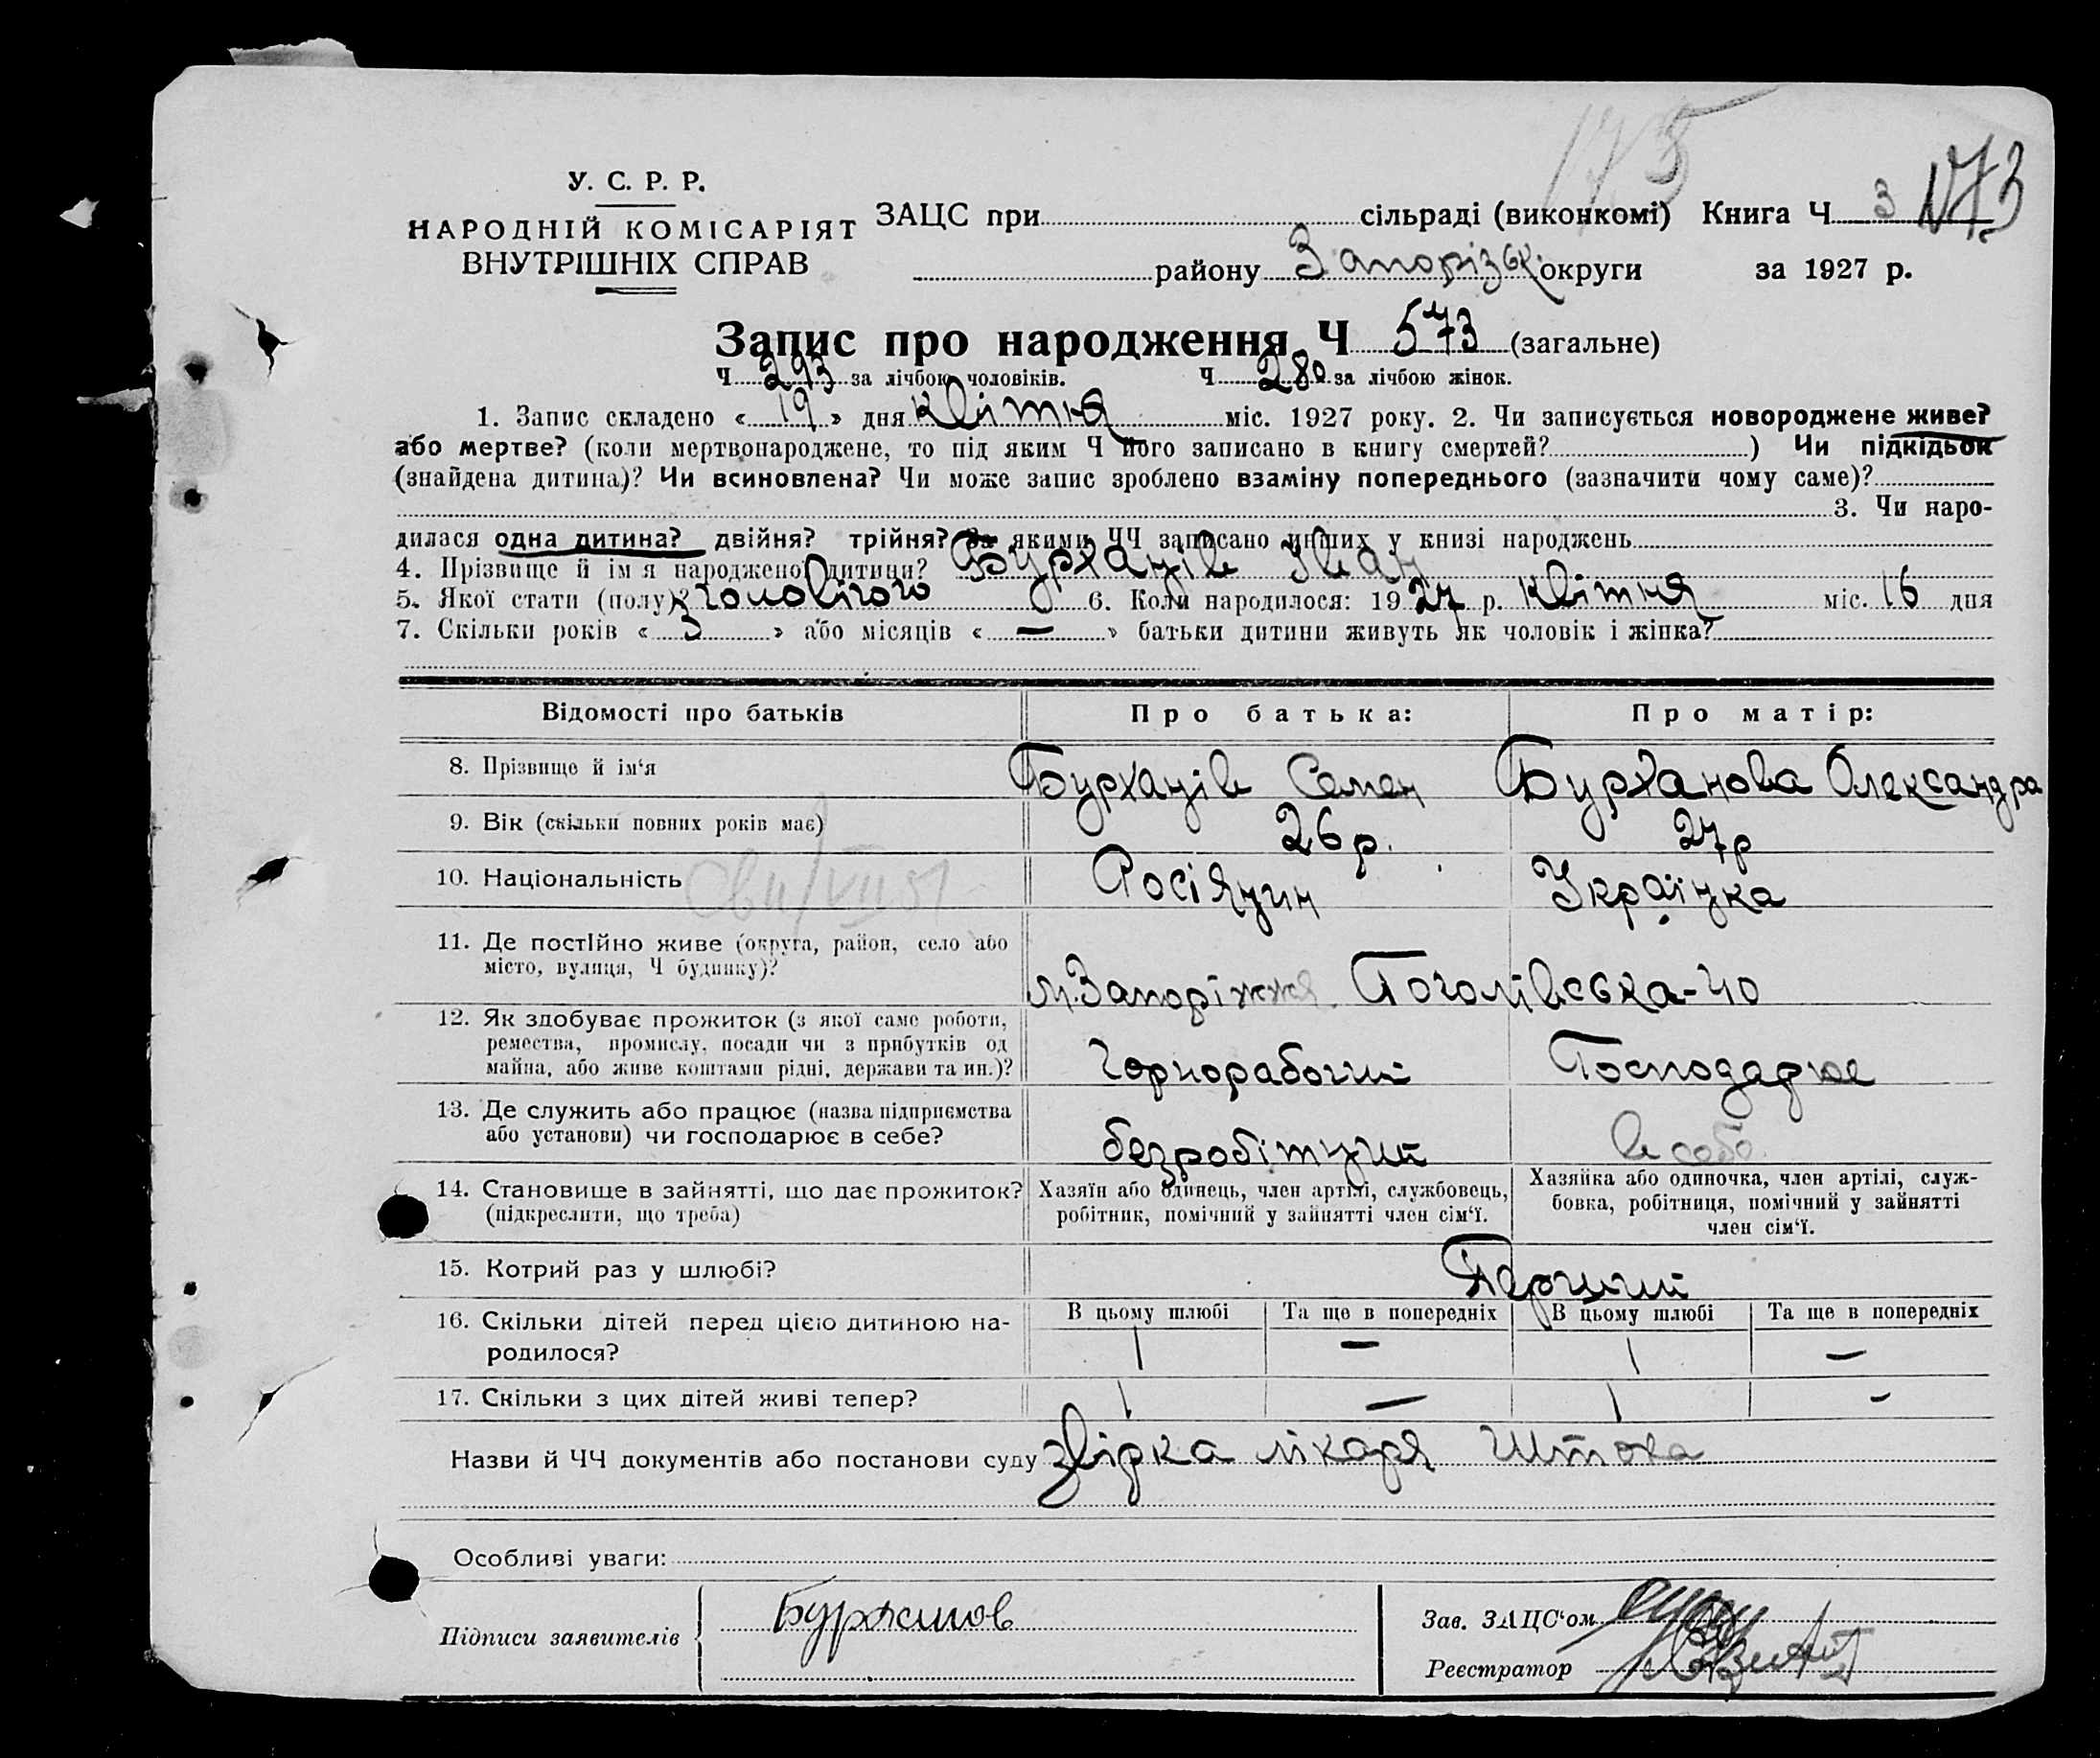 175
У. С. Р. Р.
НАРОДНІЙ КОМІСАРІЯТ
ВНУТРІШНІХ СПРАВ
ЗАЦС при сільраді (виконкомі) Книга Ч 3 173
району Запорізьк. округи за 1927 р.
Запис про народження Ч 573 (загальне)
Ч 293 за лічбою чоловіків. Ч 280 за лічбою жінок.
1. Запис складено «19» дня квітня міс. 1927 року. 2. Чи записується новороджене живе?
або мертве? (коли мертвонароджене, то під яким Ч його записано в книгу смертей? ) Чи підкідьок
(знайдена дитина)? Чи всиновлена? Чи може запис зроблено взаміну попереднього (зазначити чому саме)?
3. Чи наро-
дилася одна дитина? двійня? трійня? За якими ЧЧ записано инших у книзі народжень
4. Прізвище й ім'я народженої дитини? Бурханів Іван
5. Якої стати (полу)? чоловічого 6. Коли народилося: 1927 р. квітня міс. 16 дня
7. Скільки років «3» або місяців «—» батьки дитини живуть як чоловік і жінка?
Відомості про батьків Про батька: Про матір:
8. Прізвище й ім'я Бурханів Семен Бурханова Олександра
9. Вік (скільки повних років має) 26 р. 27 р
10. Національність Росіянин Українка
11. Де постійно живе (округа, район, село або
місто, вулиця, Ч будинку)?
м. Запоріжжя Гоголівська-40
12. Як здобуває прожиток (з якої саме роботи,
ремества, промислу, посади чи з прибутків од
майна, або живе коштами рідні, держави та ин.)?
Чорнорабочий Господарює
13. Де служить або працює (назва підприємства
або установи) чи господарює в себе?
безробітний в собе
14. Становище в зайнятті, що дає прожиток?
(підкреслити, що треба)
Хазяїн або одинець, член артілі, службовець,
робітник, помічний у зайнятті член сім'ї.
Хазяйка або одиночка, член артілі, служ-
бовка, робітниця, помічний у зайнятті
член сім'ї.
15. Котрий раз у шлюбі? Перший
16. Скільки дітей перед цією дитиною на-
родилося?
В цьому шлюбі Та ще в попередніх В цьому шлюбі Та ще в попередніх
1 — 1 —
17. Скільки з цих дітей живі тепер? 1 — 1 —
Назви й ЧЧ документів або постанови суду звірка лікаря Штока
Особливі уваги:
Підписи заявителів Бурханов
Зав. ЗАЦС'ом
Реєстратор